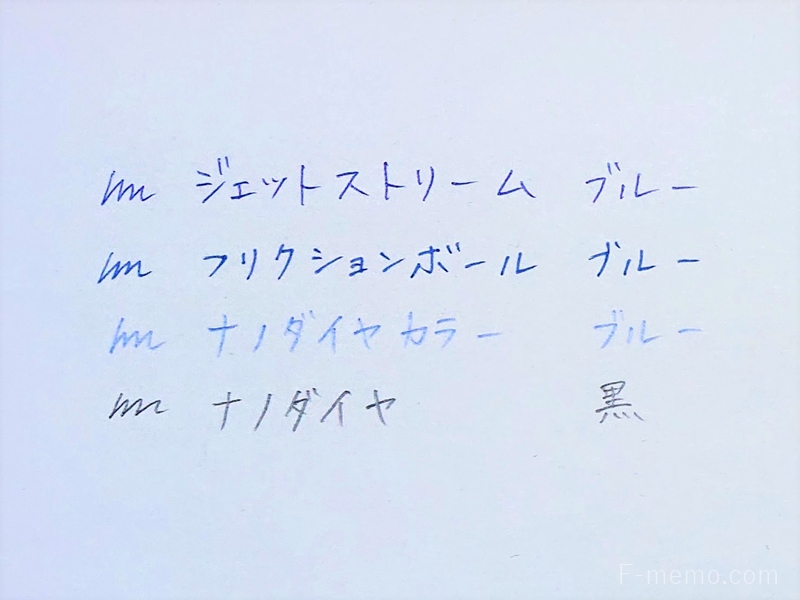 ジェットストリーム ブルー
フリクションボール ブルー
ナノダイヤカラー ブルー
ナノダイヤ 黒
F-memo.com